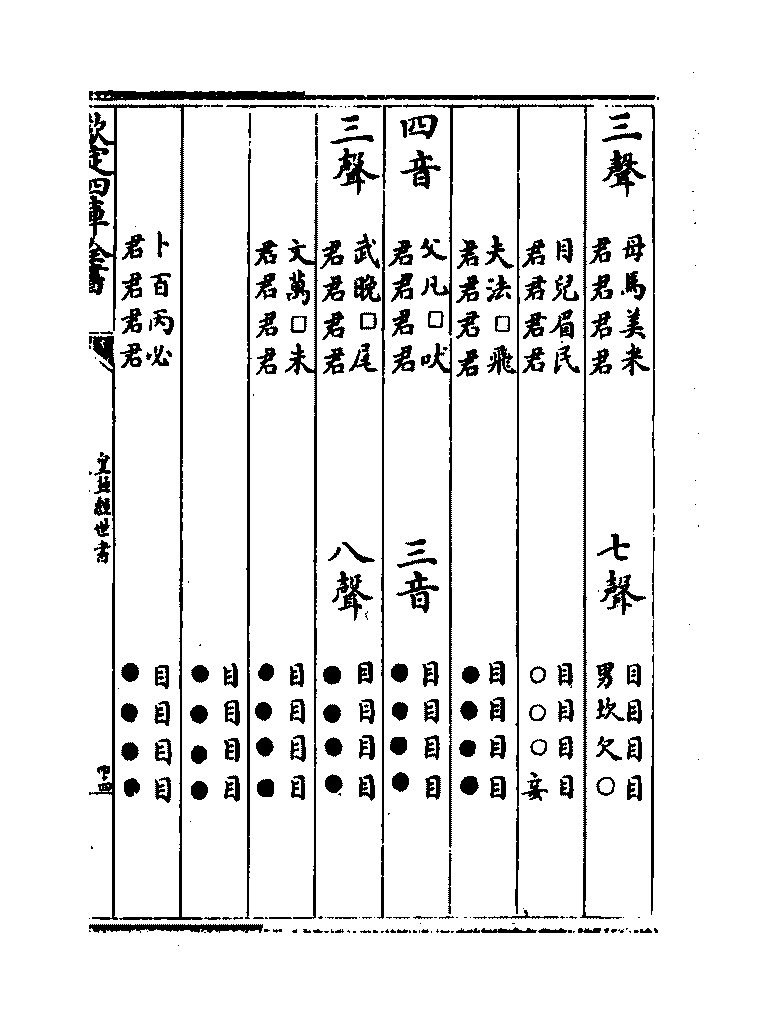 三聲
母馬美米
君君君君
七聲
目目目目
男坎欠○
目兒眉民
君君君君
目目目目
○○○妾
夫法□飛
君君君君
目目目目
●●●●
四音
父凡□吠
君君君君
三音
目目目目
●●●●
三聲
武晚□尾
君君君君
八聲
目目目目
●●●●
文萬□未
君君君君
目目目目
●●●●
目目目目
●●●●
卜百丙必
君君君君
目目目目
●●●●
欽定四庫全書
皇極經世書